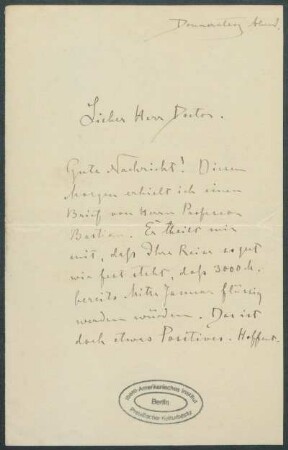 Donnerstag Abend.
Lieber Herr Doctor.
Gute Nachricht! Diesen
Morgen erhielt ich einen
Brief von Herrn Professor
Bastian. Er theilt mir
mit, daß Ihre Reise so gut
wie fest steht, daß 3000 M.
bereits Mitte Januar flüssig
werden würden. Das ist
doch etwas Positives. Hoffent-
Ibero-Amerikanisches Institut
Berlin
Preußischer Kulturbesitz